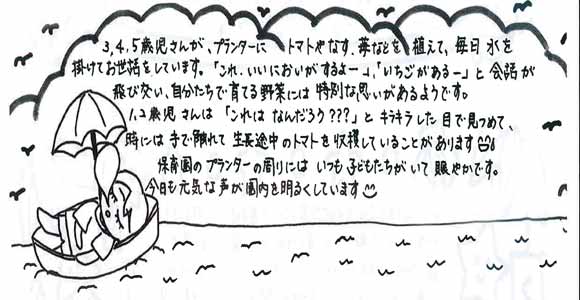 3,4,5歳児さんが、プランターに トマトやなす、苺などを 植えて、毎日 水を
掛けてお世話をしています。「これ、いいにおいがするよー」、「いちごがあるー」と 会話が
飛び交い、自分たちで育てる野菜には 特別な思いがあるようです。
1,2歳児さんは「これは なんだろう???」と キラキラした 目で見つめて、
時には 手で触れて 生長途中のトマトを収穫していることがあります
保育園のプランターの周りには いつも 子どもたちがいて 賑やかです。
今日も元気な声が園内を明るくしています